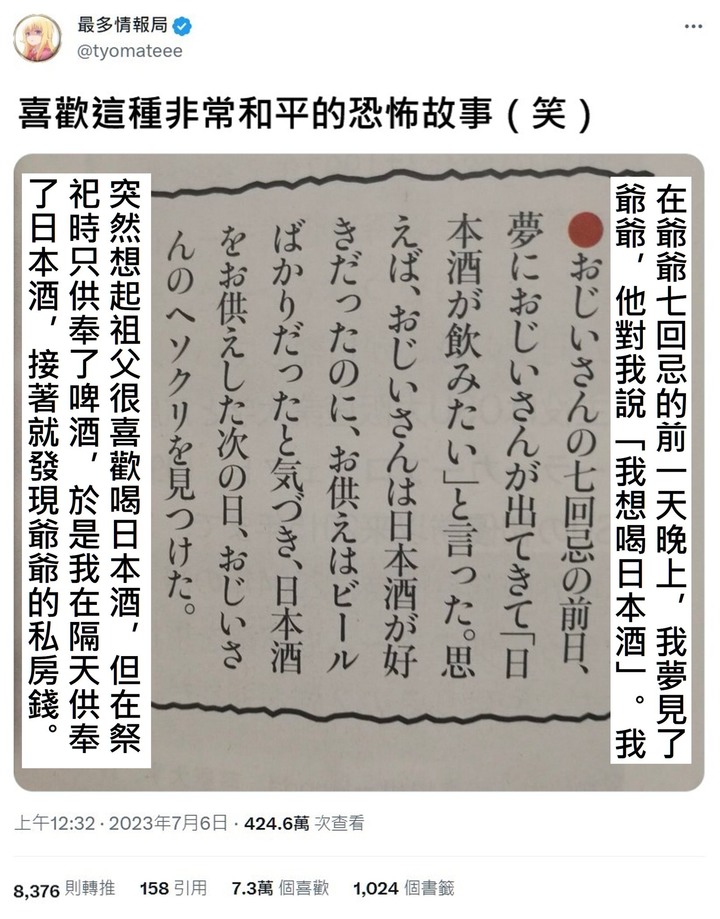 最多情報局
@tyomateee
喜歡這種非常和平的恐怖故事（笑）
在爺爺七回忌的前一天晚上，我夢見了
爺爺，他對我說「我想喝日本酒」。我
●おじいさんの七回忌の前日、
夢におじいさんが出てきて「日
本酒が飲みたい」と言った。思
えば、おじいさんは日本酒が好
きだったのに、お供えはビール
ばかりだったと気づき、日本酒
をお供えした次の日、おじいさ
んのヘソクリを見つけた。
突然想起祖父很喜歡喝日本酒，但在祭
祀時只供奉了啤酒，於是我在隔天供奉
了日本酒，接著就發現爺爺的私房錢。
上午12:32 · 2023年7月6日 · 424.6萬 次查看
8,376 則轉推 158 引用 7.3萬 個喜歡 1,024 個書籤